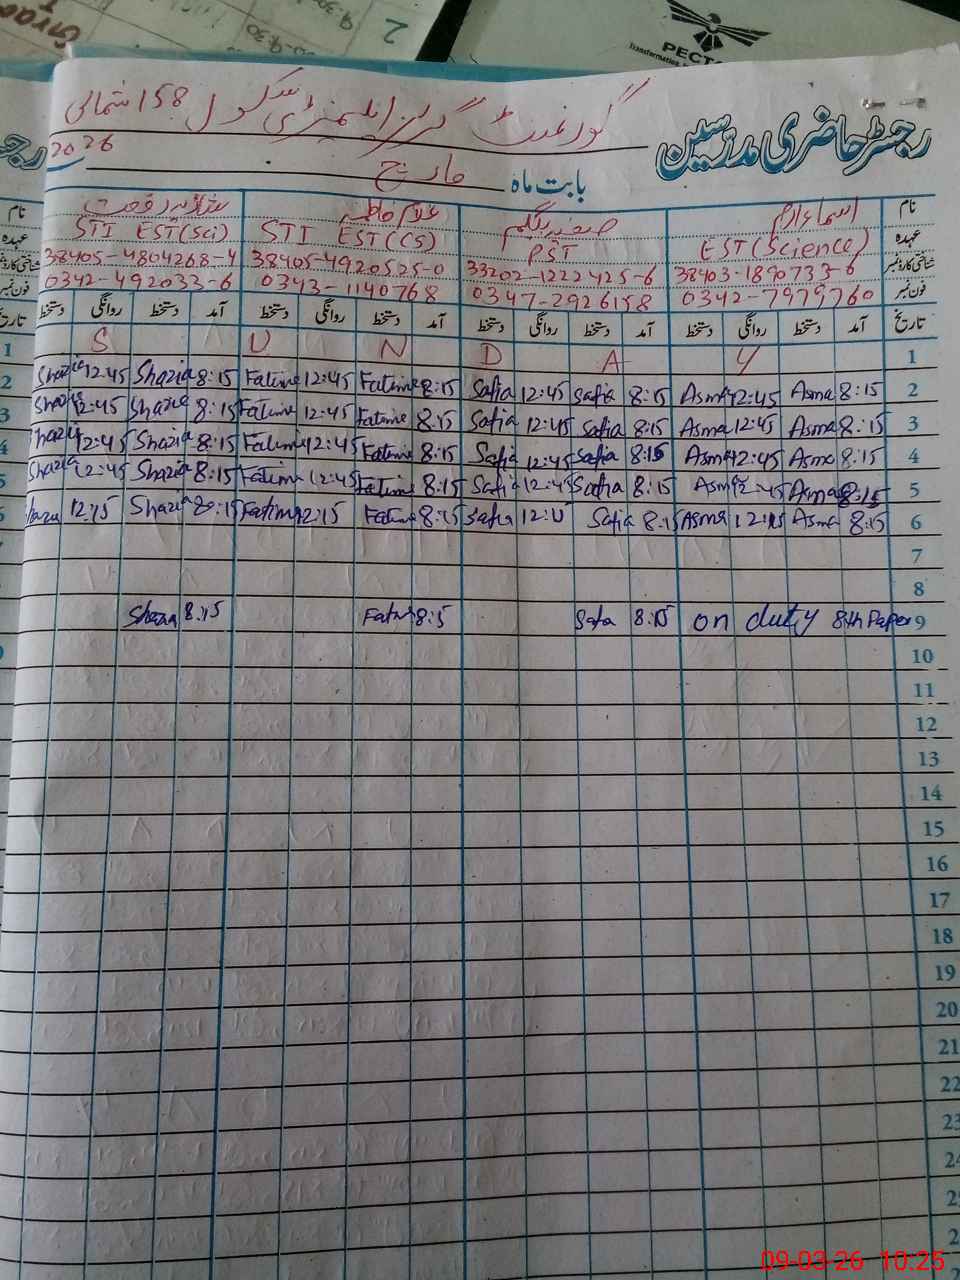 PECT
Transformation in
2
9:30
-9:30
گورنمنٹ گرلز ایلیمنٹری سکول 158 شمالی
رجسٹر حاضری مدرسین
2026
بابت ماہ مارچ
نام اسماء ارم صفیہ بیگم غلام فاطمہ شازیہ رفعت
عہدہ EST (Science) PST STI EST (CS) STI EST (Sci)
شناختی کارڈ نمبر 38403-1890733-6 33202-1222425-6 38405-4920525-0 38405-4804268-4
فون نمبر 0342-7979760 0347-2926158 0343-1140768 0342-492033-6
تاریخ آمد دستخط روانگی دستخط آمد دستخط روانگی دستخط آمد دستخط روانگی دستخط آمد دستخط روانگی دستخط
1 S U N D A Y 1
2 Shazia 12:45 Shazia 8:15 Fatima 12:45 Fatima 8:15 Safia 12:45 Safia 8:15 Asma 12:45 Asma 8:15 2
3 Shazia 12:45 Shazia 8:15 Fatima 12:45 Fatima 8:15 Safia 12:45 Safia 8:15 Asma 12:45 Asma 8:15 3
4 Shazia 12:45 Shazia 8:15 Fatima 12:45 Fatima 8:15 Safia 12:45 Safia 8:15 Asma 12:45 Asma 8:15 4
5 Shazia 12:45 Shazia 8:15 Fatima 12:45 Fatima 8:15 Safia 12:45 Safia 8:15 Asma 12:45 Asma 8:15 5
Shazia 12:15 Shazia 8:15 Fatima 12:15 Fatima 8:15 Safia Safia 8:15 Asma 12:15 Asma 8:15 6
7
8
Shazia 8:15 Fatima 8:15 Safia 8:15 on duty 8th Paper 9
10
11
12
13
14
15
16
17
18
19
20
21
22
23
24
09-03-26 10:25